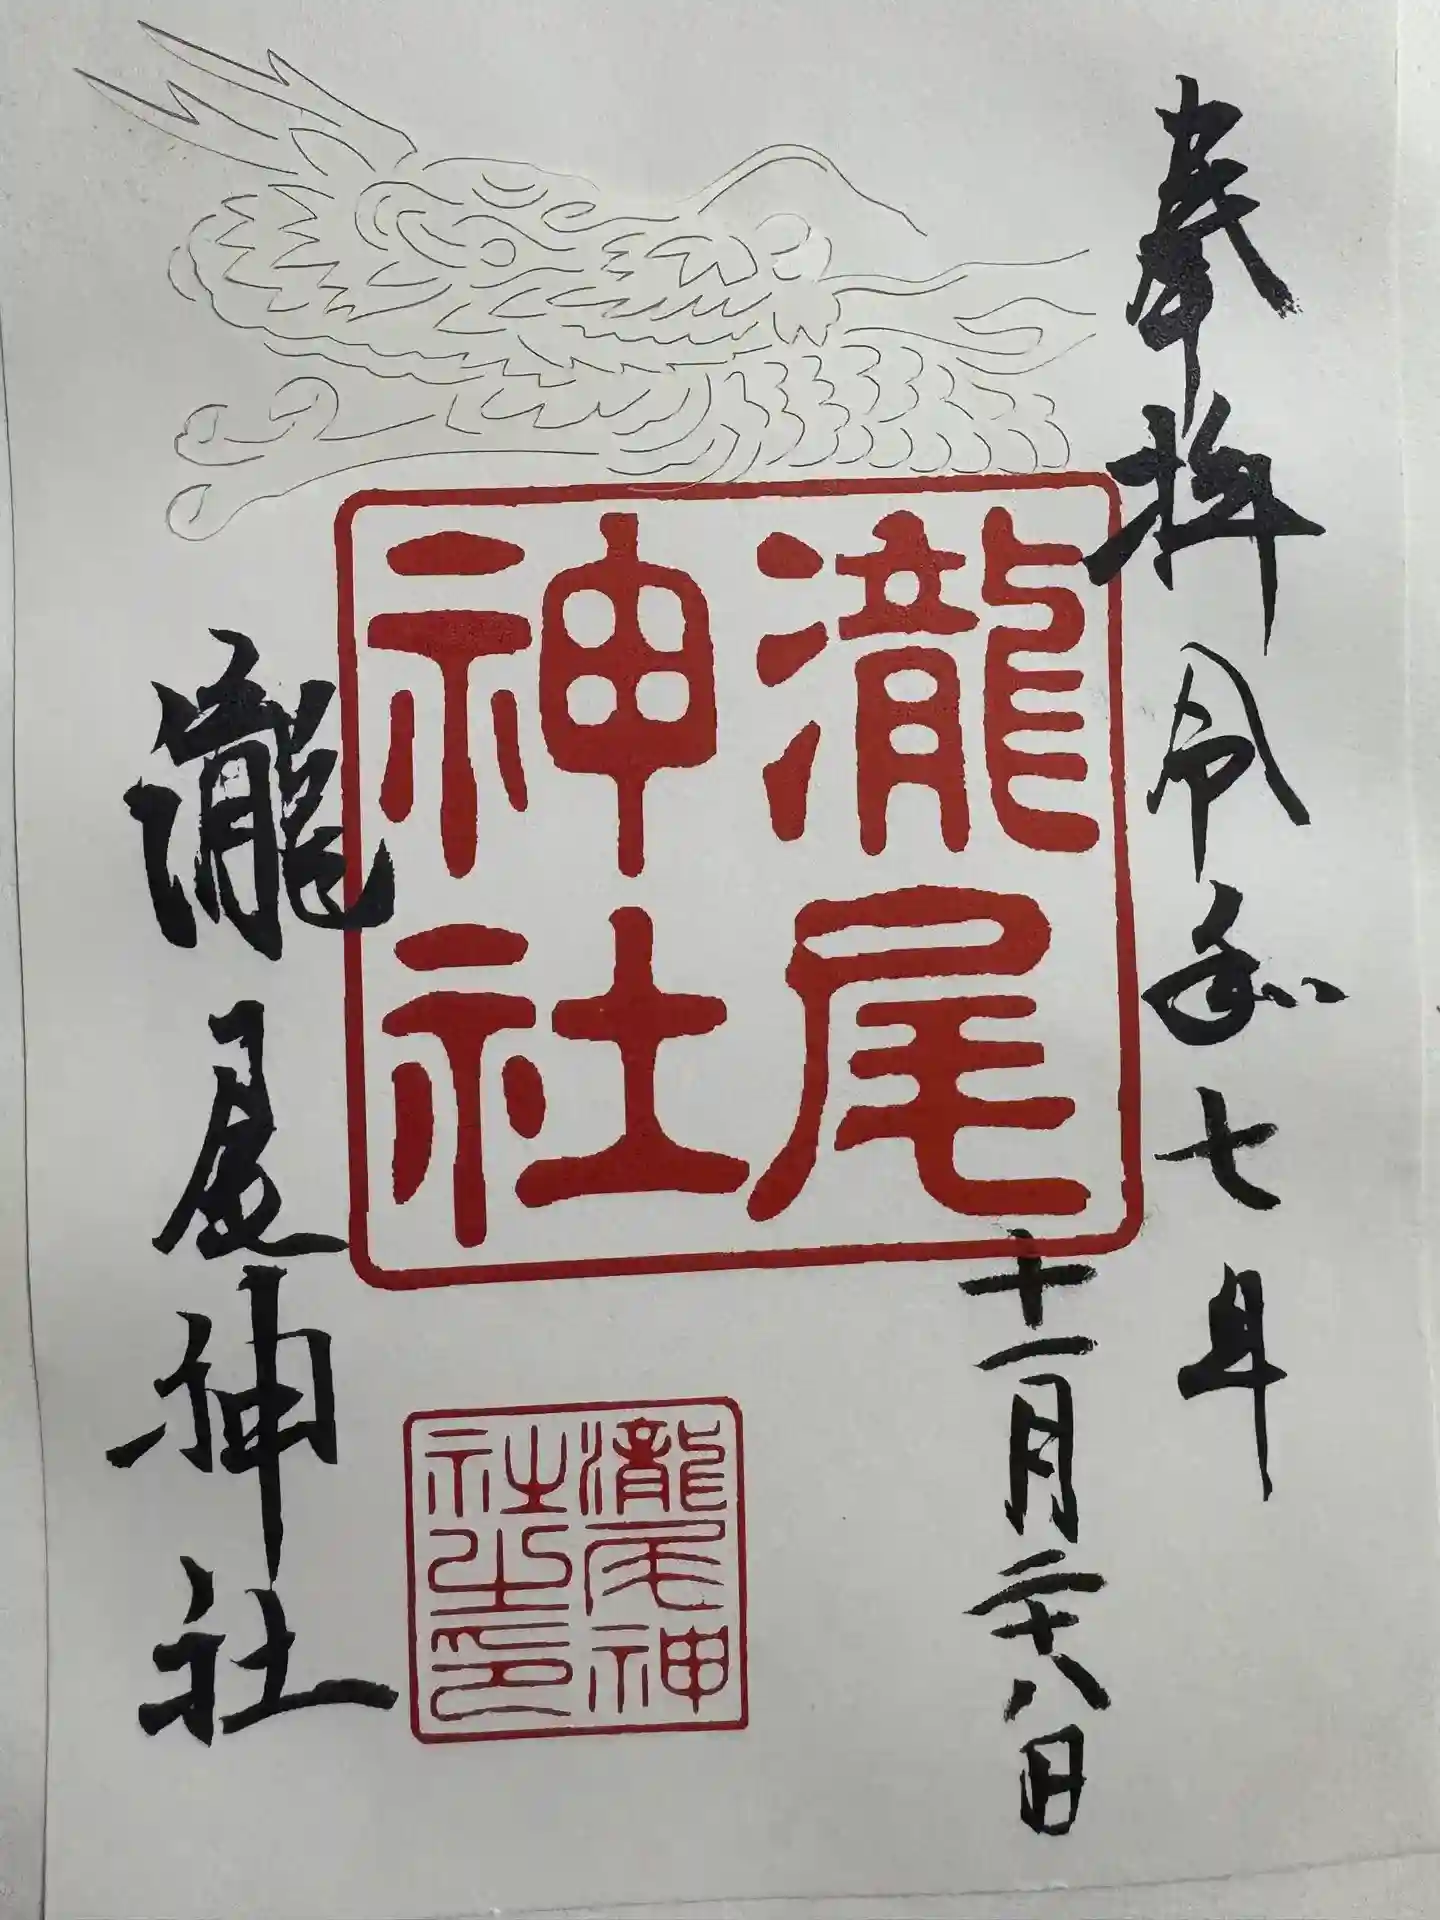 奉拝
令和七年
十一月二十八日
瀧尾
神社
瀧尾神
社之印
瀧尾神社